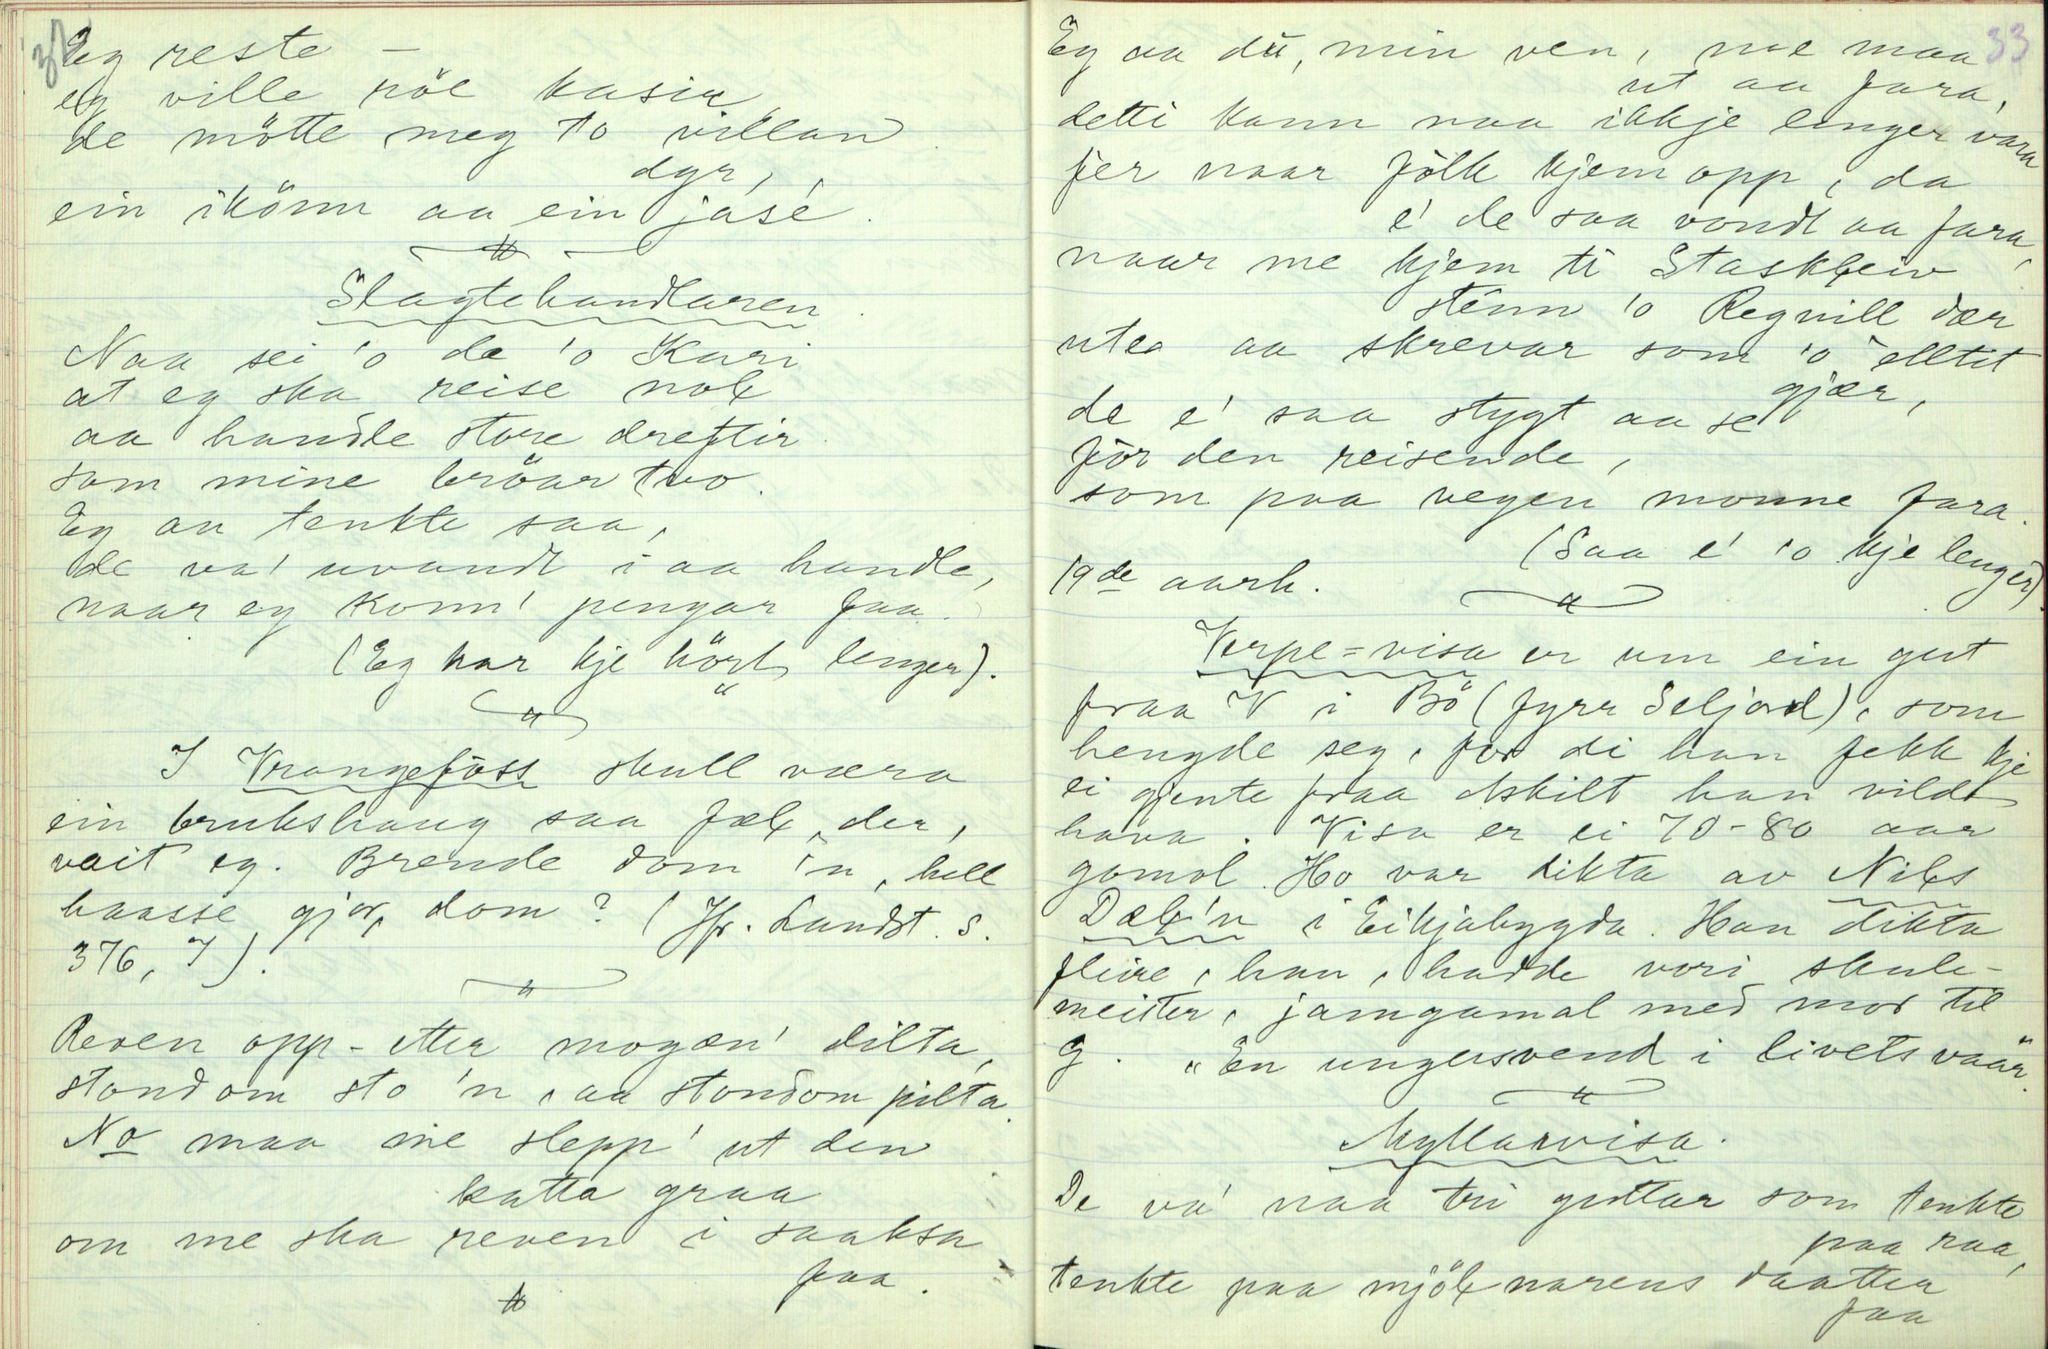 32
Eg reste —
eg ville röle kasia
de mötte meg to villan
dyr,
ein ikönn aa ein jase.
Slagtehandlaren
Naa sei 'o de 'o Kari
at eg ska reise nok
aa handle store dreftir
som mine bröar tvo.
Eg aa tenkte saa,
de va' uvandt i aa handle,
naar eg konn' pengar faa.
(Eg har kje hört lenger).
I Vrangefoss skull væra
ein brukshaug saa fæl, der,
vait eg. Brende dom 'n, hell
haasse gjor, dom? (Jfr. Landst. s.
376, 7).
Reven opp-etter mogæn' dilta,
stondom sto 'n, aa stondom pilta.
No maa me slepp' ut den
katta graa
om me ska reven i saaksa
faa.
33
Eg aa du, min ven, me maa
ut aa fara,
detti kann naa ikkje lenger vara
fer naar folk kjem opp, da
e' de saa vondt aa fara,
naar me kjem ti Staskleiv
stenn 'o Regnill dær
ute aa skrevar som 'o elltit
gjær,
de e' saa stygt aa se
for den reisende,
som paa vegen monne fara.
(Saa e' 'o kje lenger).
19de aarh.
Verpe-visa er um ein gut
fraa V i Bö (fyrr Seljord), som
hengde seg, for di han fekk kje
ei gjente fraa Askilt han vilde
hava. Visa er ei 70-80 aar
gomol. Ho var dikta av Nils
Dæl'n i Eikjabygda. Han dikta
fleire, han, hadde vori skule-
meister, jamgamal med mor til
G. "En ungersvend i livets vaar.
Myllarvisa.
De va' naa tri guttar som tenkte
paa raa,
tenkte paa mjölnarens daatter
faa